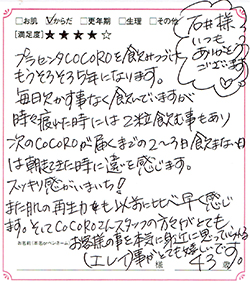 □お肌 ☑からだ □更年期 □生理 □その他
【満足度】★★★★☆
石井様
いつも
ありがとう
ございます
プラセンタCOCOROを飲みつづけ
もうそろそろ5年になります。
毎日欠かす事なく飲んでいますが
時々疲れた時には2粒飲む事もあり
次のCOCOROが届くまでの2~3日飲まない日
は朝起きた時に違いを感じます。
スッキリ感がいまいち!
また肌の再生力も以前に比べ早く感じ
ます。そしてCOCOROさんスタッフの方々がとても
お客様の事を本気に身近に思って
(エレイ)事がとても嬉しいです。
お名前(本名orペンネーム)
様 43才 歳